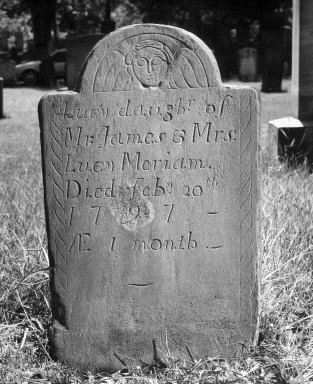 Lucy daughr. of
Mr. James & Mrs.
Lucy Meriam.
Died feby. 20th.
1797 –
Æ 1 month –